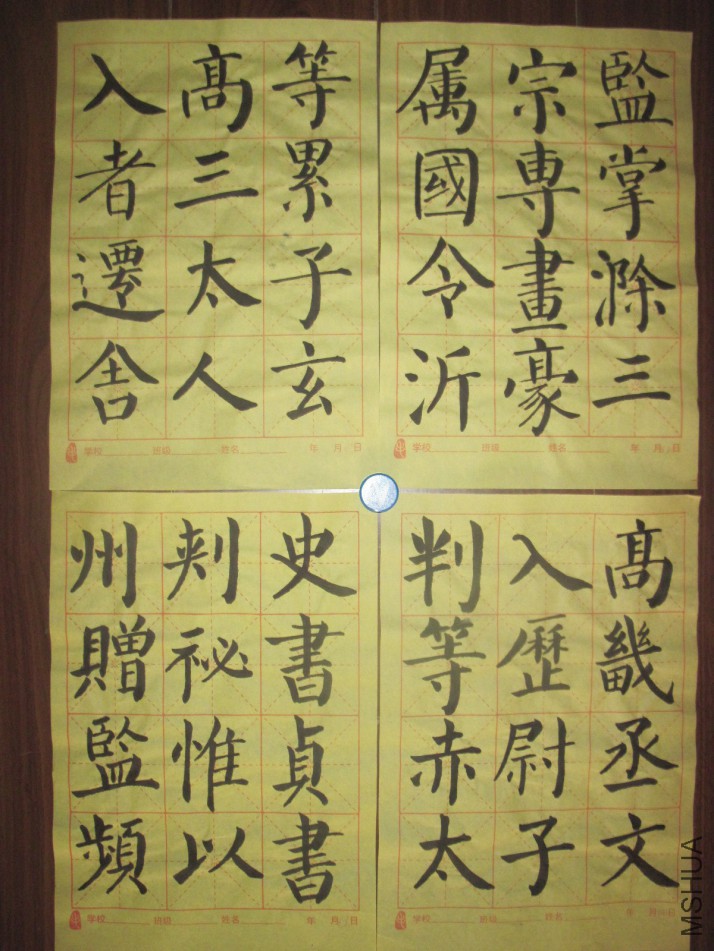 監掌滁三
宗専畫豪
属國令沂
学校 班级 姓名 年 月 日
等累子玄
髙三太人
入者遷舍
学校 班级 姓名 年 月 日
髙畿丞文
入歴尉子
判等赤太
学校 班级 姓名 年 月 日
史書貞書
刾祕惟以
州贈監頻
学校 班级 姓名 年 月 日
MSHUA